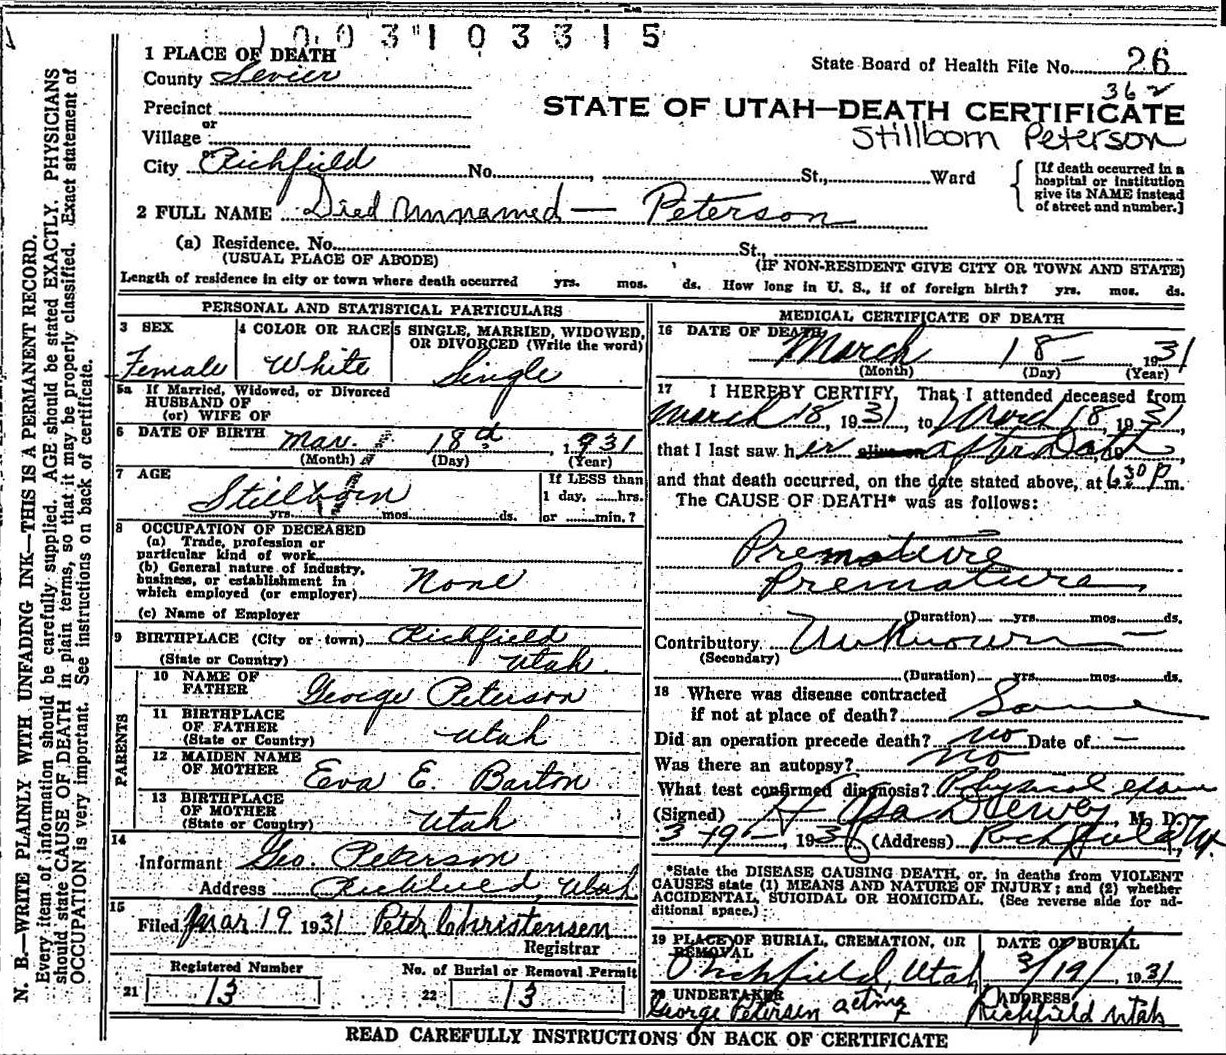 1003103315
State Board of Health File No. 26
362
STATE OF UTAH—DEATH CERTIFICATE
Stillborn Peterson
1 PLACE OF DEATH
County Sevier
Precinct
or
Village
City Richfield No. , St., Ward
[If death occurred in a hospital or institution give its NAME instead of street and number.]
2 FULL NAME Died Unnamed — Peterson
(a) Residence. No. St.,
(USUAL PLACE OF ABODE) (IF NON-RESIDENT GIVE CITY OR TOWN AND STATE)
Length of residence in city or town where death occurred yrs. mos. ds. How long in U. S., if of foreign birth? yrs. mos. ds.
PERSONAL AND STATISTICAL PARTICULARS
3 SEX
Female
4 COLOR OR RACE
White
5 SINGLE, MARRIED, WIDOWED, OR DIVORCED (Write the word)
Single
5a If Married, Widowed, or Divorced
HUSBAND OF
(or) WIFE OF
6 DATE OF BIRTH Mar. 18d 1931
(Month) (Day) (Year)
7 AGE
Stillborn
yrs. mos. ds.
If LESS than
1 day, ......hrs.
or ......min.?
8 OCCUPATION OF DECEASED
(a) Trade, profession or
particular kind of work
(b) General nature of industry,
business, or establishment in
which employed (or employer) None
(c) Name of Employer
9 BIRTHPLACE (City or town) Richfield
(State or Country) Utah
PARENTS
10 NAME OF
FATHER George Peterson
11 BIRTHPLACE
OF FATHER
(State or Country) Utah
12 MAIDEN NAME
OF MOTHER Eva E. Barton
13 BIRTHPLACE
OF MOTHER
(State or Country) Utah
14
Informant Geo. Peterson
Address Richfield, Utah
15
Filed Mar 19 1931 Peter Christensen
Registrar
Registered Number
21 13
No. of Burial or Removal Permit
22 13
MEDICAL CERTIFICATE OF DEATH
16 DATE OF DEATH
March 18 – 1931
(Month) (Day) (Year)
17 I HEREBY CERTIFY, That I attended deceased from
March 18, 1931, to March 18, 1931,
that I last saw her alive on after Death, 19
and that death occurred, on the date stated above, at 6:30 P m.
The CAUSE OF DEATH* was as follows:
Premature
Premature
(Duration) yrs. mos. ds.
Contributory Unknown —
(Secondary)
(Duration) yrs. mos. ds.
18 Where was disease contracted
if not at place of death? Same
Did an operation precede death? no Date of —
Was there an autopsy? no
What test confirmed diagnosis? Physical exam
(Signed) H Asa Dewey, M. D.
3-19-, 1931 (Address) Richfield, Ut.
*State the DISEASE CAUSING DEATH, or, in deaths from VIOLENT
CAUSES state (1) MEANS AND NATURE OF INJURY; and (2) whether
ACCIDENTAL, SUICIDAL OR HOMICIDAL. (See reverse side for ad-
ditional space.)
19 PLACE OF BURIAL, CREMATION, OR
REMOVAL
Richfield, Utah
DATE OF BURIAL
3/19/, 1931
20 UNDERTAKER
George Petersen acting
ADDRESS
Richfield Utah
READ CAREFULLY INSTRUCTIONS ON BACK OF CERTIFICATE
N. B.—WRITE PLAINLY WITH UNFADING INK—THIS IS A PERMANENT RECORD.
Every item of information should be carefully supplied. AGE should be stated EXACTLY. PHYSICIANS
should state CAUSE OF DEATH in plain terms, so that it may be properly classified. Exact statement of
OCCUPATION is very important. See instructions on back of certificate.